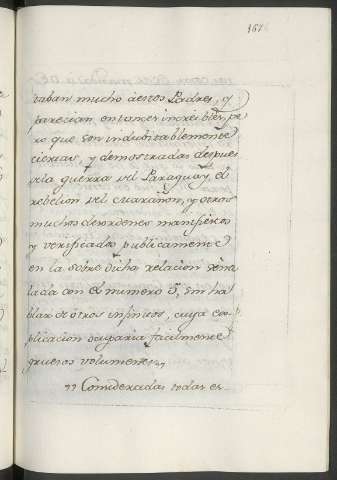 167
taban mucho áestos Padres, y
parecian entonces increibles, pe
ro que son indubitablemente
ciertas, y demostradas despues
dela guerra del Paraguay, el
rebelion del Marañon, y otros
muchos desordenes manifiestos
y verificados publicamente
en la sobre dicha relacion seña
lada con el numero 5, sin ha
blar de otros infinitos, cuya ex
plicacion ocuparia facilmente
gruesos volumenes,,
,, Consideradas todas es